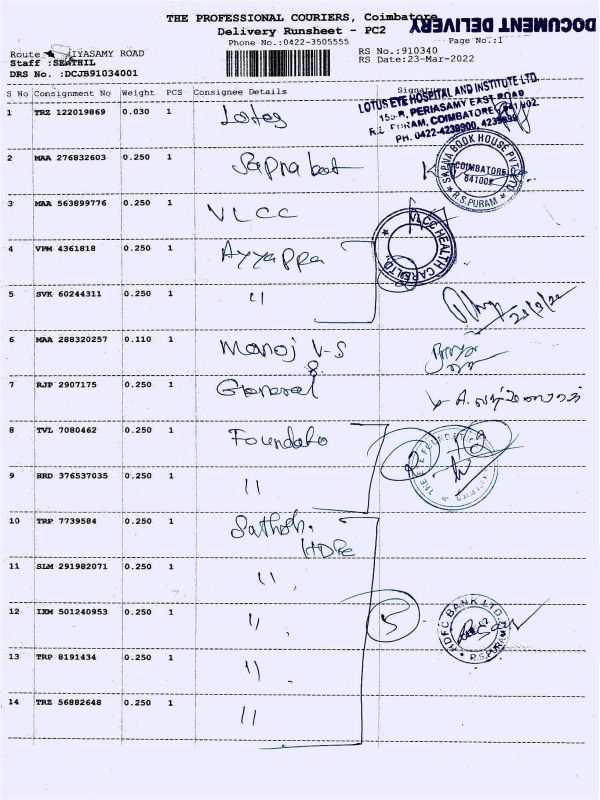 THE PROFESSIONAL COURIERS, Coimbatore
DOCUMENT DELIVERY
Delivery Runsheet - PC2
Phone No.:0422-3505555
Page No.:1
Route. IYASAMY ROAD
RS No.:910340
Staff :SENTHIL
RS Date:23-Mar-2022
DRS No. :DCJB91034001
S No Consignment No Weight PCS Consignee Details Signature
LOTUS EYE HOSPITAL AND INSTITUTE LTD.
PERIASAMY EAST ROAD
PURAM, COIMBATORE
PH. 0422-4239900,
1 TRZ 122019869 0.030 1 Lotus
2 MAA 276832603 0.250 1 Sapna
SAPNA BOOK HOUSE PVT
COIMBATORE
641002
R.S.PURAM
3 MAA 563899776 0.250 1 VLCC
VLCC HEALTH CARE LTD.
4 VPM 4361818 0.250 1 Ayyappa
5 SVK 60244311 0.250 1 "
23/3/22
6 MAA 288320257 0.110 1 Manoj V-S
7 RJP 2907175 0.250 1 General
8 TVL 7080462 0.250 1
2
9 HRD 376537035 0.250 1 "
10 TRP 7739584 0.250 1
11 SLM 291982071 0.250 1 "
12 IXM 501240953 0.250 1 "
5
HDFC BANK LTD.
R.S.PURAM
13 TRP 8191434 0.250 1 "
14 TRZ 56882648 0.250 1 "